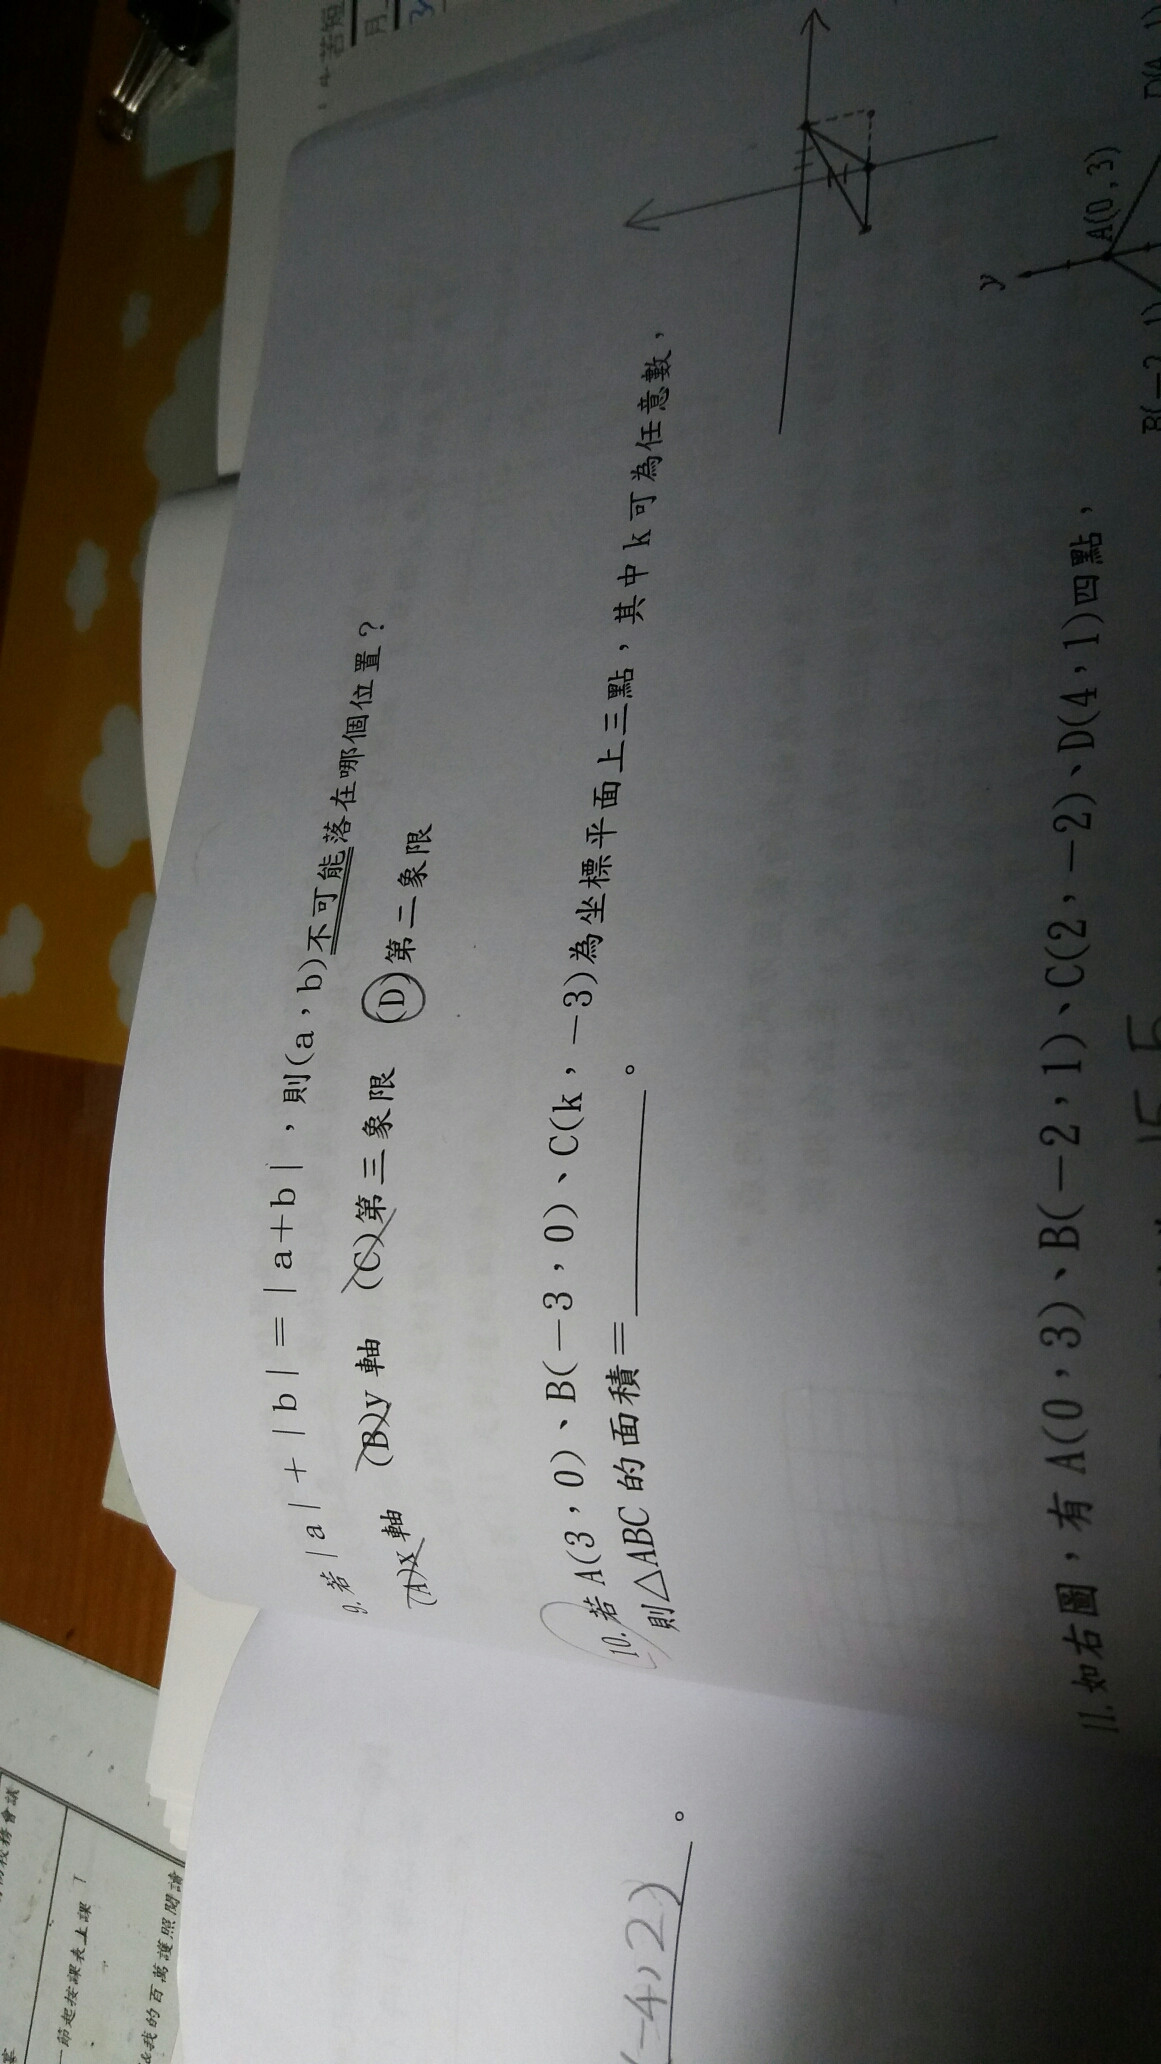 9.若|a|+|b|=|a+b|,則(a,b)不可能落在哪個位置?
(A)x軸 (B)y軸 (C)第三象限 (D)第二象限
10.若A(3,0)、B(-3,0)、C(k,-3)為坐標平面上三點,其中k可為任意數,
則△ABC的面積=________。
y
A(0,3)
11.如右圖,有A(0,3)、B(-2,1)、C(2,-2)、D(4,1)四點,
(-4,2)。
節起按課表上課
我的百萬護照閱讀